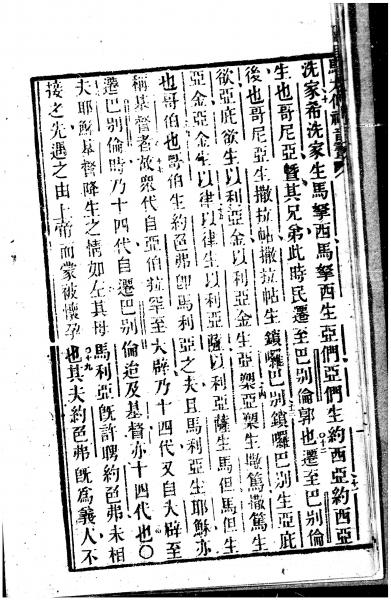 馬太傳福音書
洗家希洗家生馬拏西馬拏西生亞們亞們生約西亞約西亞
生也哥尼亞曁其兄弟此時民遷至巴別倫郭也遷至巴別倫
後也哥尼亞生撒拉帖撒拉帖生鎖囉巴別鎖囉巴別生亞庇
欲亞庇欲生以利亞金以利亞金生亞槊亞槊生撒篤撒篤生
亞金亞金生以律以律生以利亞薩以利亞薩生馬但馬但生
也哥伯也哥伯生約色弗卽馬利亞之夫且馬利亞生耶穌亦
稱基督者故衆代自亞伯拉罕至大辟乃十四代又自大辟至
遷巴別倫時乃十四代自遷巴別倫迨及基督亦十四代也〇
夫耶穌基督降生之情如左其母馬利亞旣許聘約色弗未相
接之先遇之由上帝而蒙被懷孕也其夫約色弗旣爲義人不